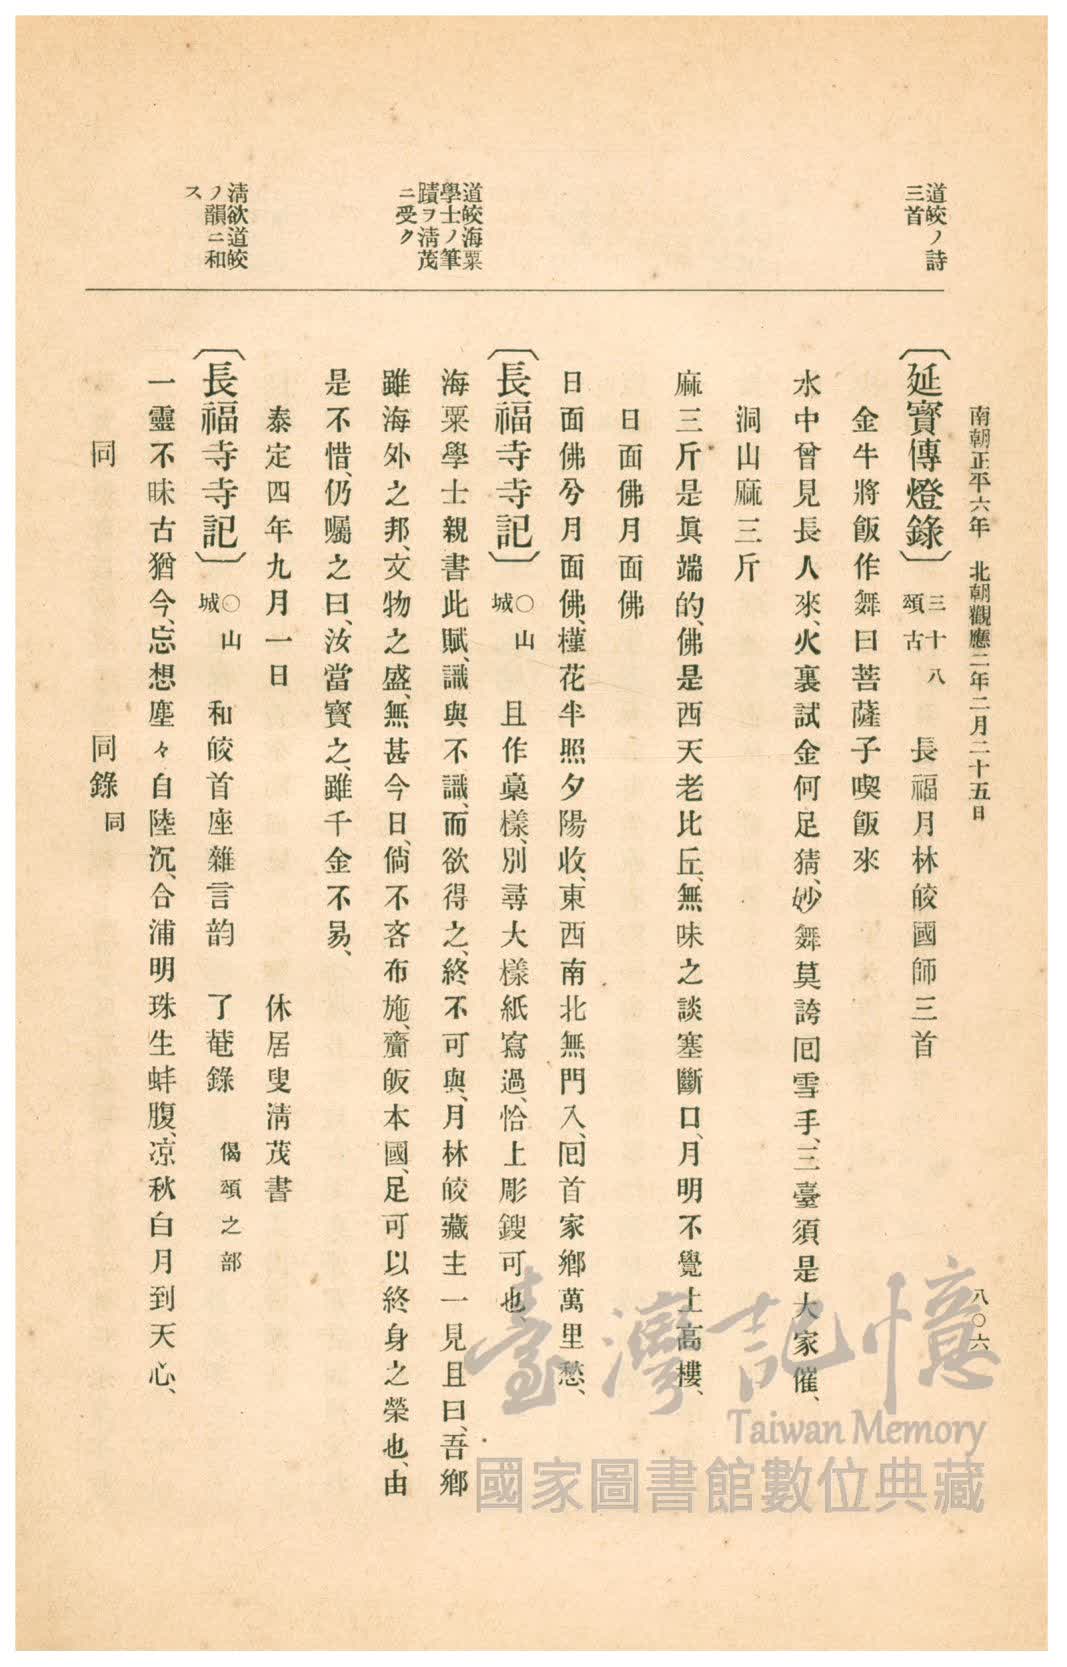 南朝正平六年　北朝觀應二年二月二十五日
八〇六
道皎ノ詩
三首
〔延寶傳燈錄〕三十八
頌古　長福月林皎國師三首
金牛將飯作舞曰菩薩子喫飯來
水中曾見長人來、火裏試金何足猜、妙舞莫誇囘雪手、三臺須是大家催、
洞山麻三斤
麻三斤是眞端的、佛是西天老比丘、無味之談塞斷口、月明不覺上高樓、
日面佛月面佛
日面佛兮月面佛、槿花半照夕陽收、東西南北無門入、囘首家鄕萬里愁、
道皎海粟
學士ノ筆
蹟ヲ淸茂
ニ受ク
〔長福寺寺記〕〇山
城　且作藁樣、別尋大樣紙寫過、恰上彫鎪可也、
海粟學士親書此賦、識與不識、而欲得之、終不可與、月林皎藏主一見且曰、吾鄕
雖海外之邦、文物之盛、無甚今日、倘不吝布施、齎皈本國、足可以終身之榮也、由
是不惜、仍囑之曰、汝當寶之、雖千金不易、
泰定四年九月一日　休居叟淸茂書
淸欲道皎
ノ韻ニ和
ス
〔長福寺寺記〕〇山
城　和皎首座雜言韵　了菴錄　偈頌之部
一靈不昧古猶今、忘想塵々自陸沉、合浦明珠生蚌腹、凉秋白月到天心、
同　同錄　同
臺灣記憶
Taiwan Memory
國家圖書館數位典藏